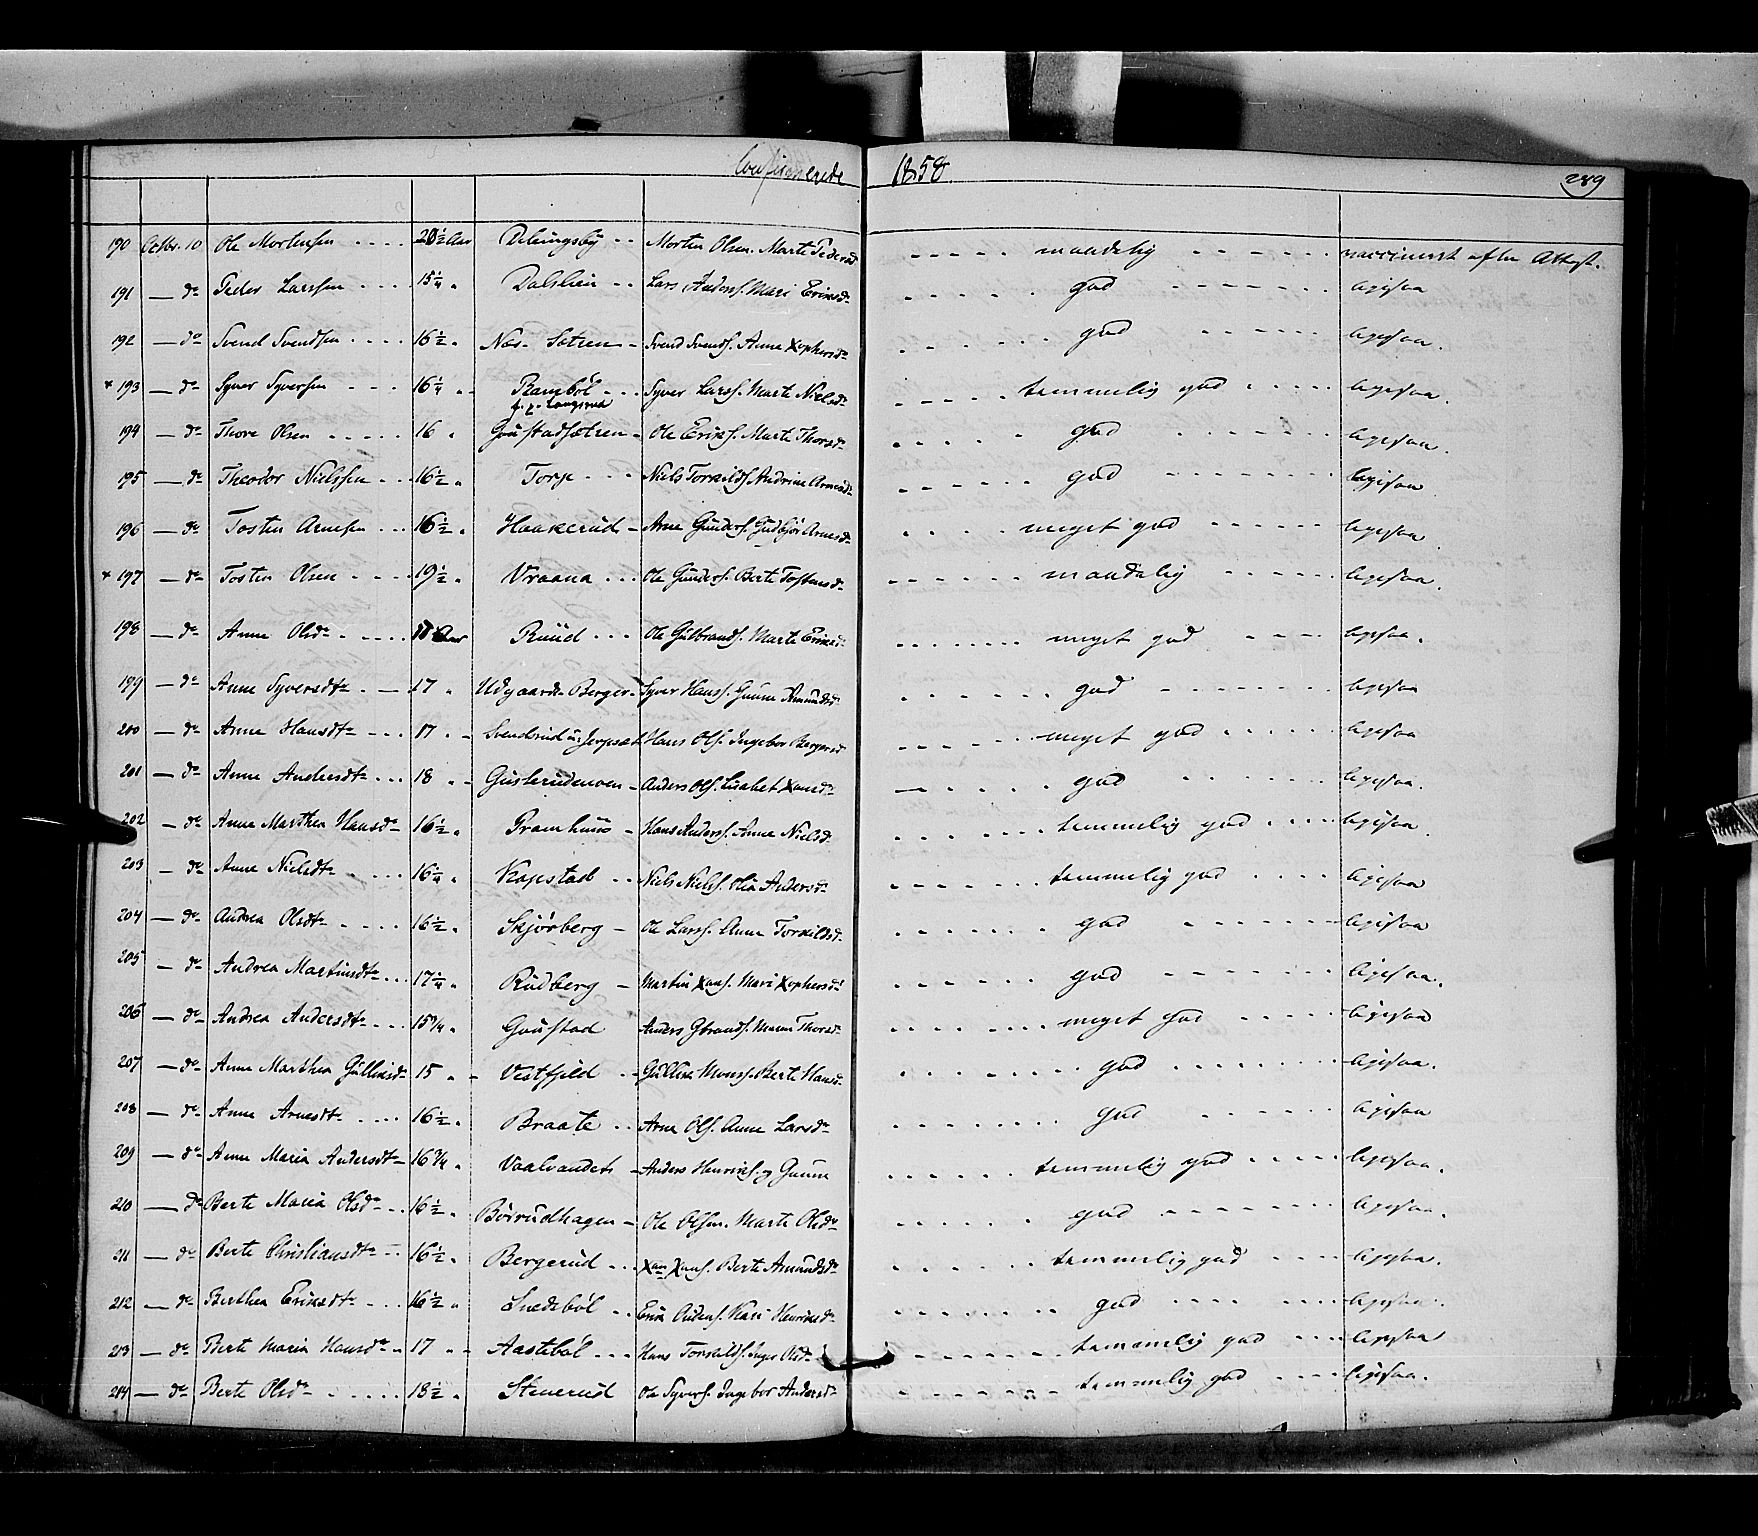 Confirmerede 1858. 289
190 Octbr. 10 Ole Mortensen .... 20½ Aar Morten Olsen. Marte Pedersd maadelig vaccineret efter Attest.
191 — do Peder Larssen .... 15¼ " Dahlien .. Lars Anders. Mari Eriksdr god ligesaa
192 — do Svend Svendsen .... 16½ " Næs Sætren - Svend Svends. Anne Xophersdr god ligesaa.
+ 193 — do Syver Syversen ... 16¼ " Rambøl ... Syver Larss. Marte Nielsdr temmelig god ligesaa.
194 — do Thore Olsen ..... 16 " Goustadsætren - Ole Eriks. Marte Thorsdr god ligesaa
195 — do Theodor Nielssen ... 16½ " Torp ... Niels Torkilds Andrine Arnesdr god ligesaa
196 — do Tosten Arnesen ... 16½ " Haakerud - Arne Gunders. Gudbjør Arnesdr meget god ligesaa
+ 197 — do Tosten Olsen .... 19½ " Vraana ... Ole Gunders. Berte Tostensdr maadelig ligesaa.
198 — do Anne Olsdr ..... Aar Ruud ... Ole Gulbrands. Marte Eriksdr meget god ligesaa.
199 — do Anne Syversdtr .— 17 " Udgaards Berger - Syver Hanss. Gunne Amundsdr god ligesaa
200 — do Anne Hansdtr ... 17 " Svendsrud u. Jerpset Hans Ols. Ingebor Bergersdr meget god ligesaa
201 — do Anne Andersdtr ... 18 " Gusterudmoen - Anders Ols. Lisabet Xansdr god ligesaa.
202 — do Anne Marthea Hansdr 16½ " Framhuus - Hans Anderss. Anne Nielsdr temmelig god ligesaa.
203 — do Anne Nielsdtr .... 16¼ " Kopstad .. Niels Nielss. Olia Andersdr temmelig god ligesaa
204 — do Andrea Olsdtr .... 16½ " Skjørberg - Ole Larss. Anne Torkildsdr god ligesaa
205 — do Andrea Martinsdtr ... 17¼ " Rudberg - Martin Xans. Mari Xophersdr god ligesaa.
206 — do Andrea Andersdtr ... 15¾ " Goustad Anders Gbrands. Maren Thorsdr meget god ligesaa
207 — do Anne Marthea Gulliksdr 15 " Vestfjeld .. Gullik Monss. Berte Hansdr god ligesaa.
208 — do Anne Arnesdtr .... 16½ " Braate .. Arne Ols. Anne Larsdr god ligesaa
209 — do Anne Maria Andersdtr 16¾ " Vaalvandet - Anders Henriks. og Gunne temmelig god ligesaa.
210 — do Berte Maria Olsdr .. 16½ " Børrudhagen - Ole Olsen. Marte Olsdr god ligesaa.
211 — do Berte Christiansdtr 16½ " Bergerud ... Xan Xans. Berte Amundsdr temmelig god ligesaa.
212 — do Berthea Eriksdtr ... 16½ " .. Erik Anders. Kari Henriksdr god ligesaa.
213 — do Berte Maria Hansdr .. 17 " Aastebøl ... Hans Torkilds. Inger Olsdr temmelig god ligesaa
214 — do Berte Olsdr ..... 18½ " Stenerud Ole Syvers. Ingebor Andersdr temmelig god ligesaa.